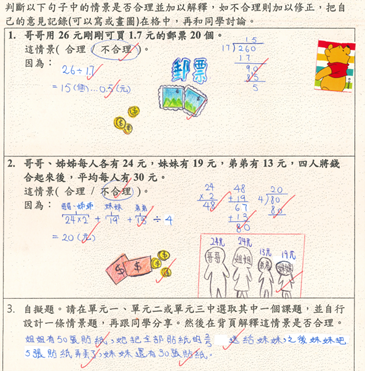 判斷以下句子中的情景是否合理並加以解釋，如不合理則加以修正，把自
己的意見記錄(可以寫或畫圖)在格中，再和同學討論。
1. 哥哥用 26 元剛剛可買 1.7 元的郵票 20 個。
這情景( 合理 / 不合理 )。
因為：
26÷1.7
=15(個)...0.5(元)
郵票
15
17)260
17
90
85
5
2. 哥哥、姊姊每人各有 24 元，妹妹有 19 元，弟弟有 13 元，四人將錢
合起來後，平均每人有 30 元。
這情景( 合理 / 不合理 )。
因為：
哥哥、姊姊 妹妹 弟弟
24×2 + 19 + 13 ÷ 4
=20(元)
24
× 2
48
48
+19
67
+13
80
20
4)80
80
24元 24元 13元 19元
哥哥 姐姐
3. 自擬題。請在單元一、單元二或單元三中選取其中一個課題，並自行
設計一條情景題，再跟同學分享。然後在背頁解釋這情景是否合理。
姐姐有50張貼紙，她把全部貼紙 送給妹妹，之後妹妹把
5張貼紙弄丟了，妹妹還有50張貼紙。